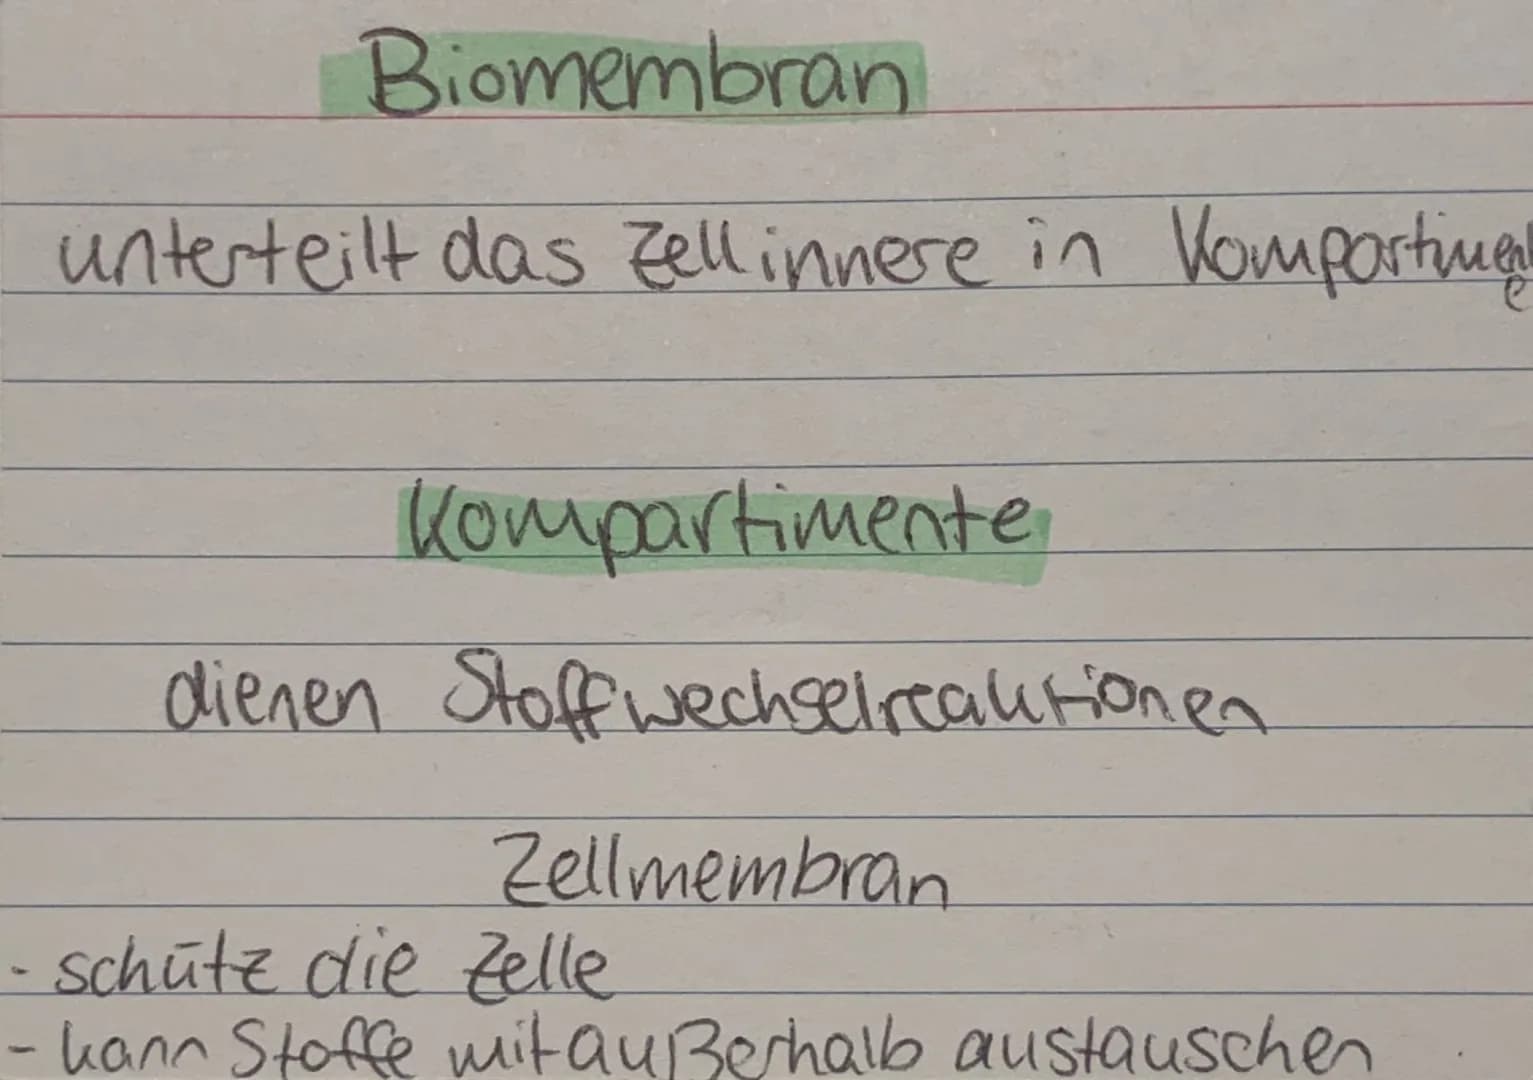 Biomembran
unterteilt das Zellinnere in Kompartimente
Kompartimente
dienen Stoffwechselreaktionen
Zellmembran
- schütz die Zelle
- kann Stoffe mit außerhalb austauschen